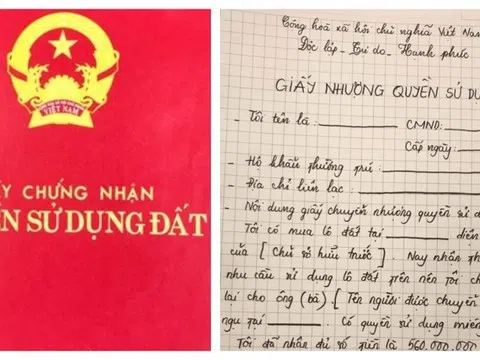 VIỆT NAM
ẤY CHỨNG NHẬN
ỀN SỬ DỤNG ĐẤT
Cộng hoà xã hội chủ nghĩa Việt Nam
Độc lập - Tự do - Hạnh phúc
GIẤY NHƯỢNG QUYỀN SỬ DỤ
- Tôi tên là: CMND:
Cấp ngày:
- Hộ khẩu thường trú:
- Địa chỉ liên lạc:
- Nội dung giấy chuyển nhượng quyền sử d
Tôi có mua lô đất tại diện
của [Chủ sở hữu trước]. Nay nhận th
nhu cầu sử dụng lô đất trên nên tôi ch
lại cho ông (bà) [Tên người được chuyển
ngụ tại Có quyền sử dụng miếng
Tôi đã nhận đủ số tiền là 560.000.000